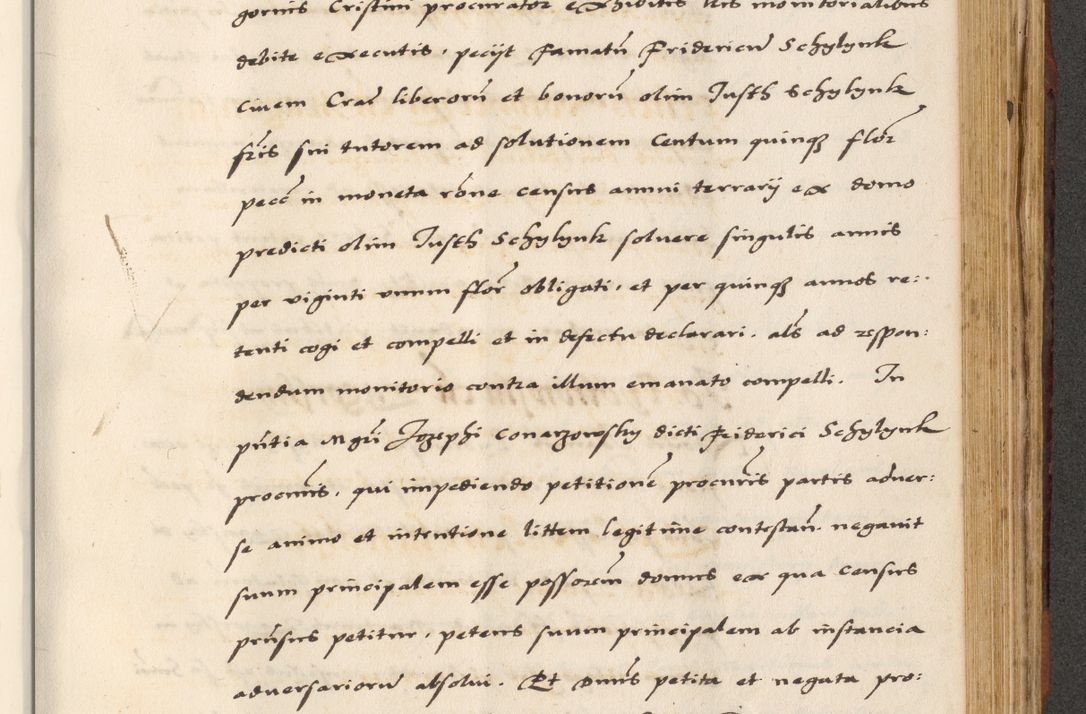 gornis Cristini procurator exhibitis lris monitorialibus
debite executis, pecijt Famatū Fridericū Schylynk
Ciuem Craē liberorū et bonorū olim Justh Schylynk
frīs sui tutorem ad solutionem Centum quinqȝ flor
pecē in moneta rōne census annui terrarij ex domo
predicti olim Justh Schylynk soluere singulis annis
per viginti vnum flor obligati, et per quinqȝ annos re:
tenti cogi et compelli et in defectu declarari. als ad respon:
dendum monitorio contra illum emanato compelli. In
pn̄tia Mgri Jozephi Conarzowsky dicti Friderici Schylynk
procuris, qui impediendo petitionē procuris partis aduer:
se animo et intentione littem legitime contestan̄. negauit
suum principalem esse possorem domus ex qua census
prn̄sus petitur, petens suum principalem ab instancia
aduersariorū absolui. Et Dnūs petita et negata pro: